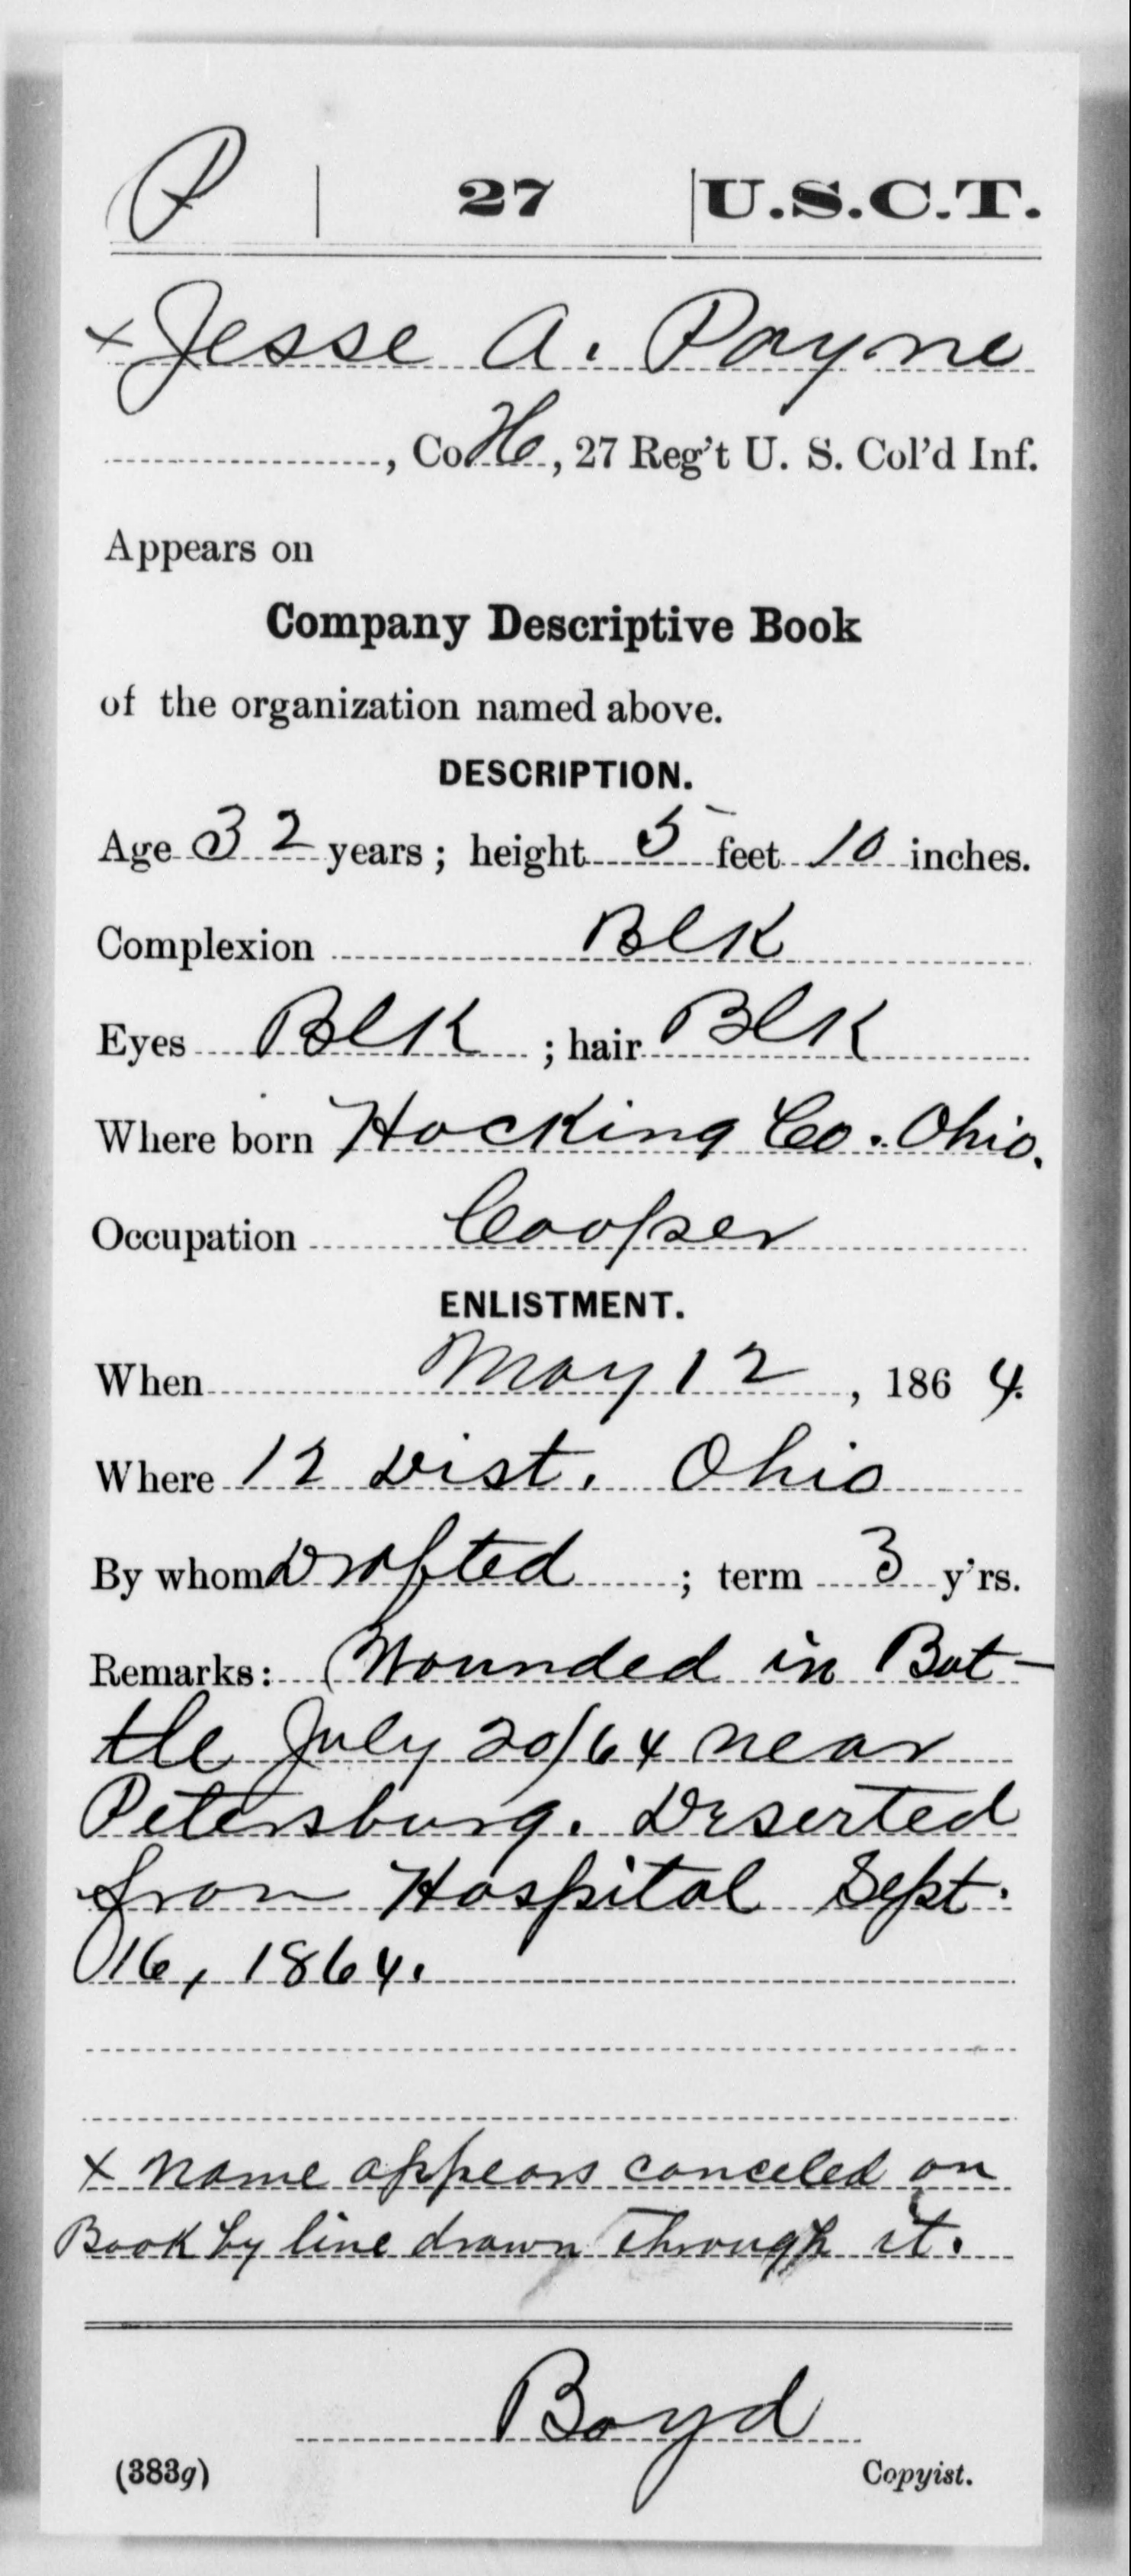 P | 27 | U.S.C.T.
x Jesse A. Payne
, Co. H, 27 Reg't U. S. Col'd Inf.
Appears on
Company Descriptive Book
of the organization named above.
DESCRIPTION.
Age 32 years; height 5 feet 10 inches.
Complexion Blk
Eyes Blk; hair Blk
Where born Hocking Co. Ohio.
Occupation Cooper
ENLISTMENT.
When May 12, 1864.
Where 12 Dist. Ohio
By whom Drafted; term 3 y'rs.
Remarks: Wounded in Bat-
tle July 20/64 near
Petersburg. Deserted
from Hospital Sept.
16, 1864.
x Name appears canceled on
Book by line drawn through it.
Boyd
(383g) Copyist.